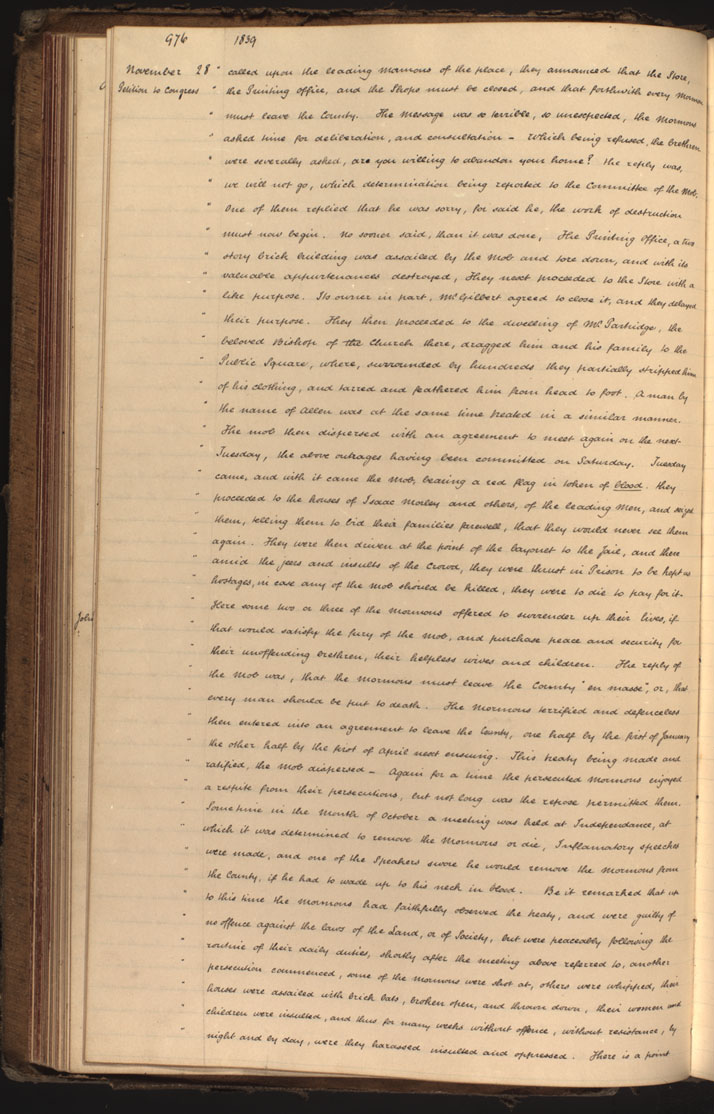 976 1839
November 28 " called upon the leading mormons of the place, they announced that the Store,
Petition to Congress " the Printing office, and the Shops must be closed, and that forthwith every Mormon
" must leave the County. The message was so terrible, so unexpected, the Mormons
" asked time for deliberation, and consultation – Which being refused, the brethren
" were severally asked, are you willing to abandon your home? the reply was,
" we will not go, which determination being reported to the Committee of the Mob.
" One of them replied that he was sorry, for said he, the work of destruction
" must now begin. No sooner said, than it was done, The Printing Office, a two
" story brick building was assailed by the Mob and tore down, and with its
" valuable appurtenances destroyed, They next proceeded to the Store with a
" like purpose. Its owner in part, Mr Gilbert agreed to close it, and they delayed
" their purpose. They then proceeded to the dwelling of Mr Partridge, the
" beloved Bishop of the Church there, dragged him and his family to the
" Public Square, where, surrounded by hundreds they partially stripped him
" of his clothing, and tarred and feathered him from head to foot. A man by
" the name of Allen was at the same time treated in a similar manner.
" The mob then dispersed with an agreement to meet again on the next
" Tuesday, the above outrages having been committed on Saturday. Tuesday
" came, and with it came the Mob, bearing a red flag in token of blood. they
" proceeded to the houses of Isaac Morley and others, of the leading Men, and seized
" them, telling them to bid their families farewell, that they would never see them
" again. They were then driven at the point of the bayonet to the Jail, and there
" amid the jeers and insults of the Crowd, they were thrust in Prison to be kept as
" hostages, in case any of the Mob should be killed, they were to die to pay for it.
" Here some two or three of the Mormons offered to surrender up their lives, if
" that would satisfy the fury of the Mob, and purchase peace and security for
" their unoffending brethren, their helpless wives and children. The reply of
" the Mob was, that the Mormons must leave the County "en masse", or, that
" every man should be put to death. The Mormons terrified and defenceless
" then entered into an agreement to leave the County, one half by the first of January
" the other half by the first of April next ensuing. This treaty being made and
" ratified, the Mob dispersed – Again for a time the persecuted Mormons enjoyed
" a respite from their persecutions, but not long was the repose permitted them.
" Sometime in the Month of October a meeting was held at Independance, at
" which it was determined to remove the Mormons or die, Inflamatory speeches
" were made, and one of the Speakers swore he would remove the Mormons from
" the County, if he had to wade up to his neck in blood. Be it remarked that up
" to this time the Mormons had faithfully observed the treaty, and were guilty of
" no offence against the laws of the Land, or of Society, but were peaceably following the
" routine of their daily duties, shortly after the meeting above referred to, another
" persecution commenced, some of the Mormons were shot at, others were whipped, their
" houses were assailed with brick bats, broken open, and thrown down, their women and
" children were insulted, and thus for many weeks without offence, without resistance, by
" night and by day, were they harassed insulted and oppressed. There is a point